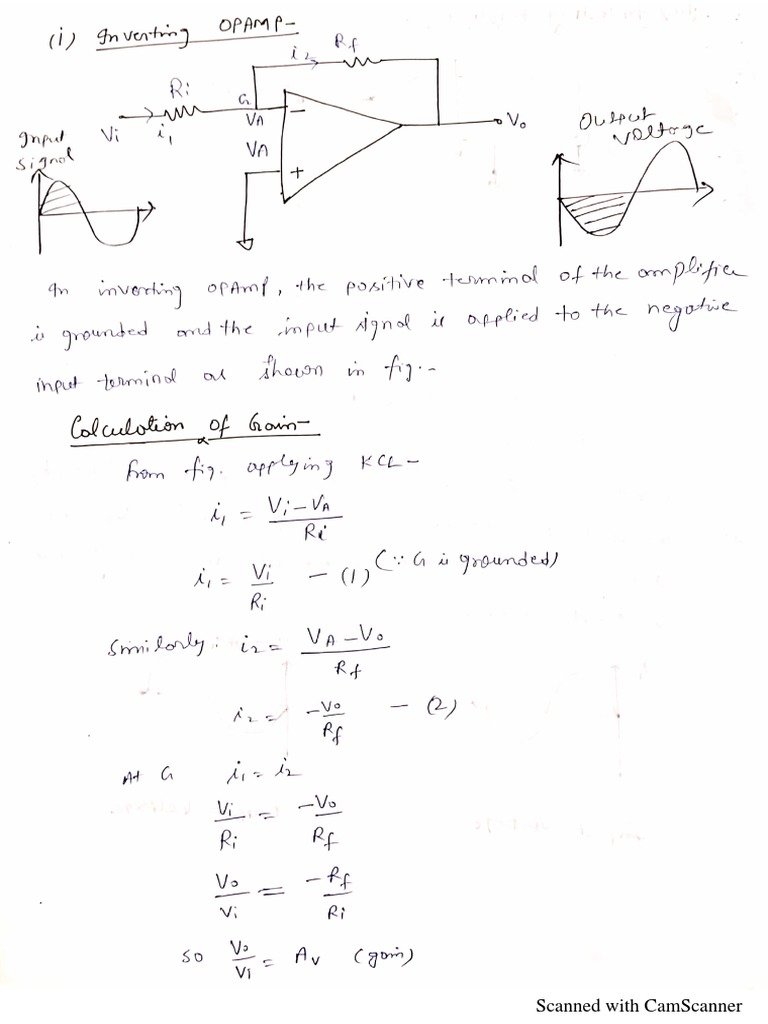 (i) Inverting OPAMP-
i2 Rf
Ri
G
Vi i1 VA
VA
Vo
- 
+
Input
signal
Output
voltage
In inverting OPAMP, the positive terminal of the amplifier
is grounded and the input signal is applied to the negative
input terminal as shown in fig.-
Calculation of Gain-
from fig. applying KCL-
i1 = Vi-VA / Ri
i1 = Vi / Ri - (1) (∵ G is grounded)
Similarly: i2 = VA-Vo / Rf
i2 = -Vo / Rf - (2)
At G i1 = i2
Vi / Ri = -Vo / Rf
Vo / Vi = -Rf / Ri
so Vo / Vi = Av (gain)
Scanned with CamScanner